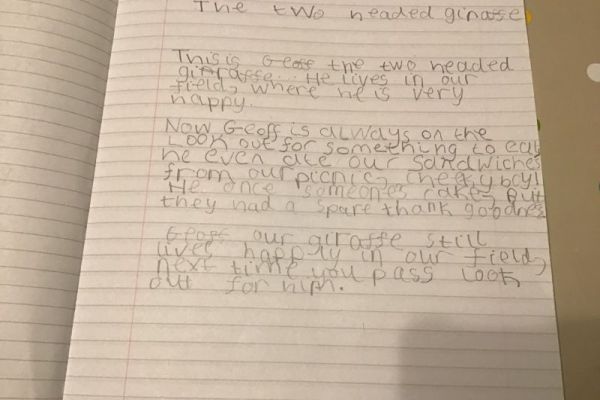 The two headed giraffe
This is Geoff the two headed
giraffe. He lives in our
field, where he is very
happy.
Now Geoff is always on the
Look out for something to eat
he even ate our sandwiches
from our picnic, cheeky boy!
He once someones cake, but
they had a spare thank goodness
Geoff our giraffe still
lives happily in our field,
next time you pass look
out for him.